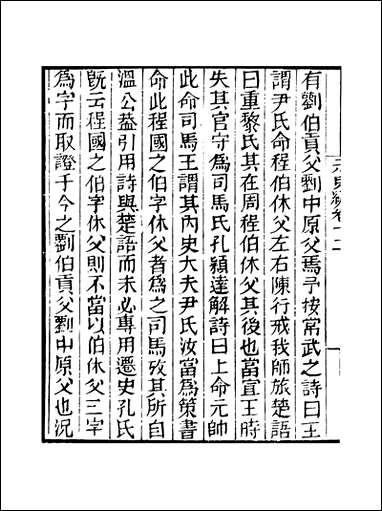 有劉伯貢父劉中原父焉予按常武之詩曰王
謂尹氏命程伯休父左右陳行戒我師旅楚語
曰重黎氏其在周程伯休父其後也當宣王時
失其官守為司馬氏孔穎達解詩曰上命元帥
此命司馬王謂其内史大夫尹氏汝當為策書
命此程國之伯字休父者為之司馬攷其所自
溫公葢引用詩與楚語而未必專用遷史孔氏
旣云程國之伯字休父則不當以伯休父三字
為字而取證于今之劉伯貢父劉中原父也況